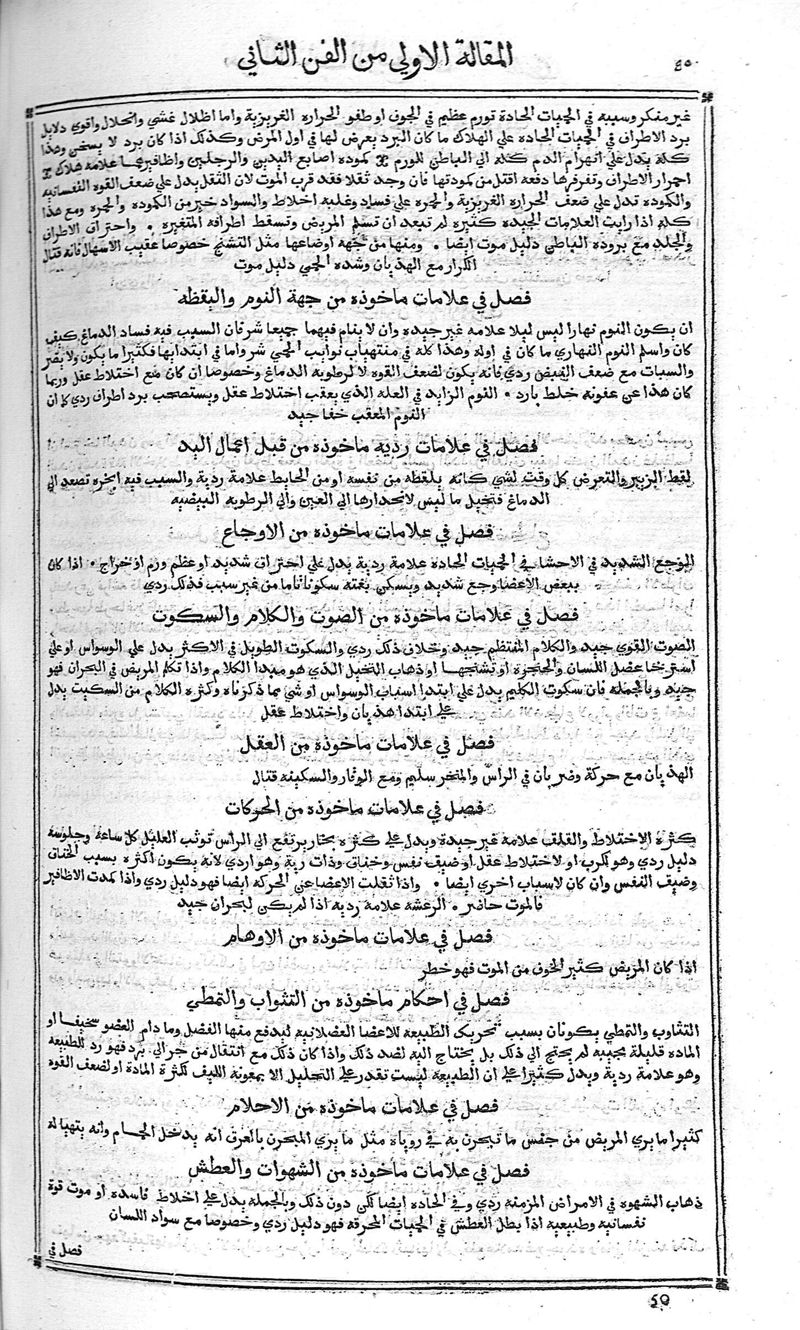 المقالة الاولي من الفن الثاني
٤٥٠
غير مفكر وسببه في الحميات الحادة تورم عظيم في الجوف او طفو الحراره الغريزية واما اظلال غشي وانحلال واقوي دلايل
برد الاطراف في الحميات الحاده علي الهلاك ما كان البرد يعرض لها في اول المرض وكذلك اذا كان برد لا يسخن وهذا
كله يدل علي انهزام الدم كله الي الباطن للورم كموده اصابع اليدين والرجلين واظافيرهما علامه هلاك
احمرار الاطراف وتفرفرها دفعه اقتل من كمودتها فان وجد ثقلا فقد قرب الموت لان الثقل يدل علي ضعف القوه النفسانيه
والكوده تدل علي ضعف الحراره الغريزية والحمره علي فساد وغلبه اخلاط والسواد خير من الكموده والحمره ومع هذا
كله اذا رايت العلامات الجيده كثيره لم تبعد ان تسلم المريض وتسقط اطرافه المتغيره واحتراق الاطران
والجلد مع بروده الباطن دليل موت ايضا ومنها من جهه اوضاعها مثل التشنج خصوصا عقيب الاسهال فانه قتال
الكرار مع الهذيان وشده الحمي دليل موت
فصل في علامات ماخوذه من جهة النوم واليقظه
ان يكون النوم نهارا ليس ليلا علامه غير جيده وان لا ينام فيهما جميعا شر فان السبب فيه فساد الدماغ كيف
كان واسلم النوم النهاري ما كان في اوله وهذا كله في منتهيات نوايب الحمي شر واما في ابتدايها فكثيرا ما يكون ولا يضر
والسبات مع ضعف النبض ردي فانه يكون لضعف القوه لا لرطوبه الدماغ وخصوصا ان كان مع اختلاط عقل وربما
كان هذا عن عفونه خلط بارد النوم الزايد في العله الذي يعقب اختلاط عقل ويستصحب برد اطران ردي كما ان
النوم المعقب خفا جيد
فصل في علامات رديه ماخوذه من قبل اعمال اليد
لقط الزبير والتعرض كل وقت لشي كانه يلقطه من نفسه او من الحايط علامة ردية والسبب فيه ابخره تصعد الي
الدماغ فتخيل ما ليس لانحدارها الي العين والي الرطوبه البيضيه
فصل في علامات ماخوذه من الاوجاع
الوجع الشديد في الاحشا في الحميات الحادة علامة ردية يدل علي احتراق شديد او عظم ورم او خراج اذا كان
ببعض الاعضا وجع شديد ويسكن بغته سكونا تاما من غير سبب فذلك ردي
فصل في علامات ماخوذه من الصوت والكلام والسكوت
الصوت القوي جيد والكلام المنتظم جيد وخلان ذلك ردي والسكوت الطويل في الاكثر يدل علي الوسواس او علي
استرخا عضل اللسان والحنجرة او تشنجها او ذهاب التخيل الذي هو مبدا الكلام واذا تكلم المريض في البحران فهو
جيد وبالجمله فان سكوت الكليم يدل علي ابتدا اسباب الوسواس او شي مما ذكرناه وكثره الكلام من السكيت يدل
علي ابتدا هذيان واختلاط عقل
فصل في علامات ماخوذه من العقل
الهذيان مع حركة وضربان في الراس والمنخر سليم ومع الوقار والسكينه قتال
فصل في علامات ماخوذه من الحركات
كثرة الاختلاط والقلق علامة غير جيدة ويدل علي كثره بخار يرتفع الي الرأس توثب العليل كل ساعة وجلوسه
دليل ردي وهو لكرب او لاختلاط عقل او ضيق نفس وخناق وذات رية وهو اردي لانه يكون اكثره بسبب الخناق
وضيق النفس وان كان لاسباب اخري ايضا واذا ثقلت الاعضا عن الحركه ايضا فهو دليل ردي واذا كمدت الاظافير
فالموت حاضر الرعشه علامة ردية اذا لم يكن لبحران جيد
فصل في علامات ماخوذه من الاوهام
اذا كان المريض كثير الخوف من الموت فهو خطر
فصل في احكام ماخوذه من التثواب والتمطي
التثاوب والتمطي يكونان بسبب تحريك الطبيعه للاعضا العضلانية ليدفع منها الفضل وما دام العضو سخيفا او
الماده قليلة مجيبه لم يحتج الي ذلك بل يحتاج اليه لضد ذلك واذا كان ذلك مع انتقال من حر الي برد فهو رد للطبيعه
وهو علامة ردية ويدل كثيرا علي ان الطبيعه ليست تقدر علي التحليل الا بمعونه الليف لكثرة المادة او لضعف القوه
فصل في علامات ماخوذه من الاحلام
كثيرا ما يري المريض من جنس ما يبحرن به في روياه مثل ما يري المبحرن بالعرق انه يدخل الحمام وانه يتهيا له
فصل في علامات ماخوذه من الشهوات والعطش
ذهاب الشهوه في الامراض المزمنه ردي وفي الحاده ايضا لكن دون ذلك وبالجمله يدل علي اخلاط فاسده او موت قوة
نفسانية وطبيعيه اذا بطل العطش في الحميات المحرقه فهو دليل ردي وخصوصا مع سواد اللسان
فصل في